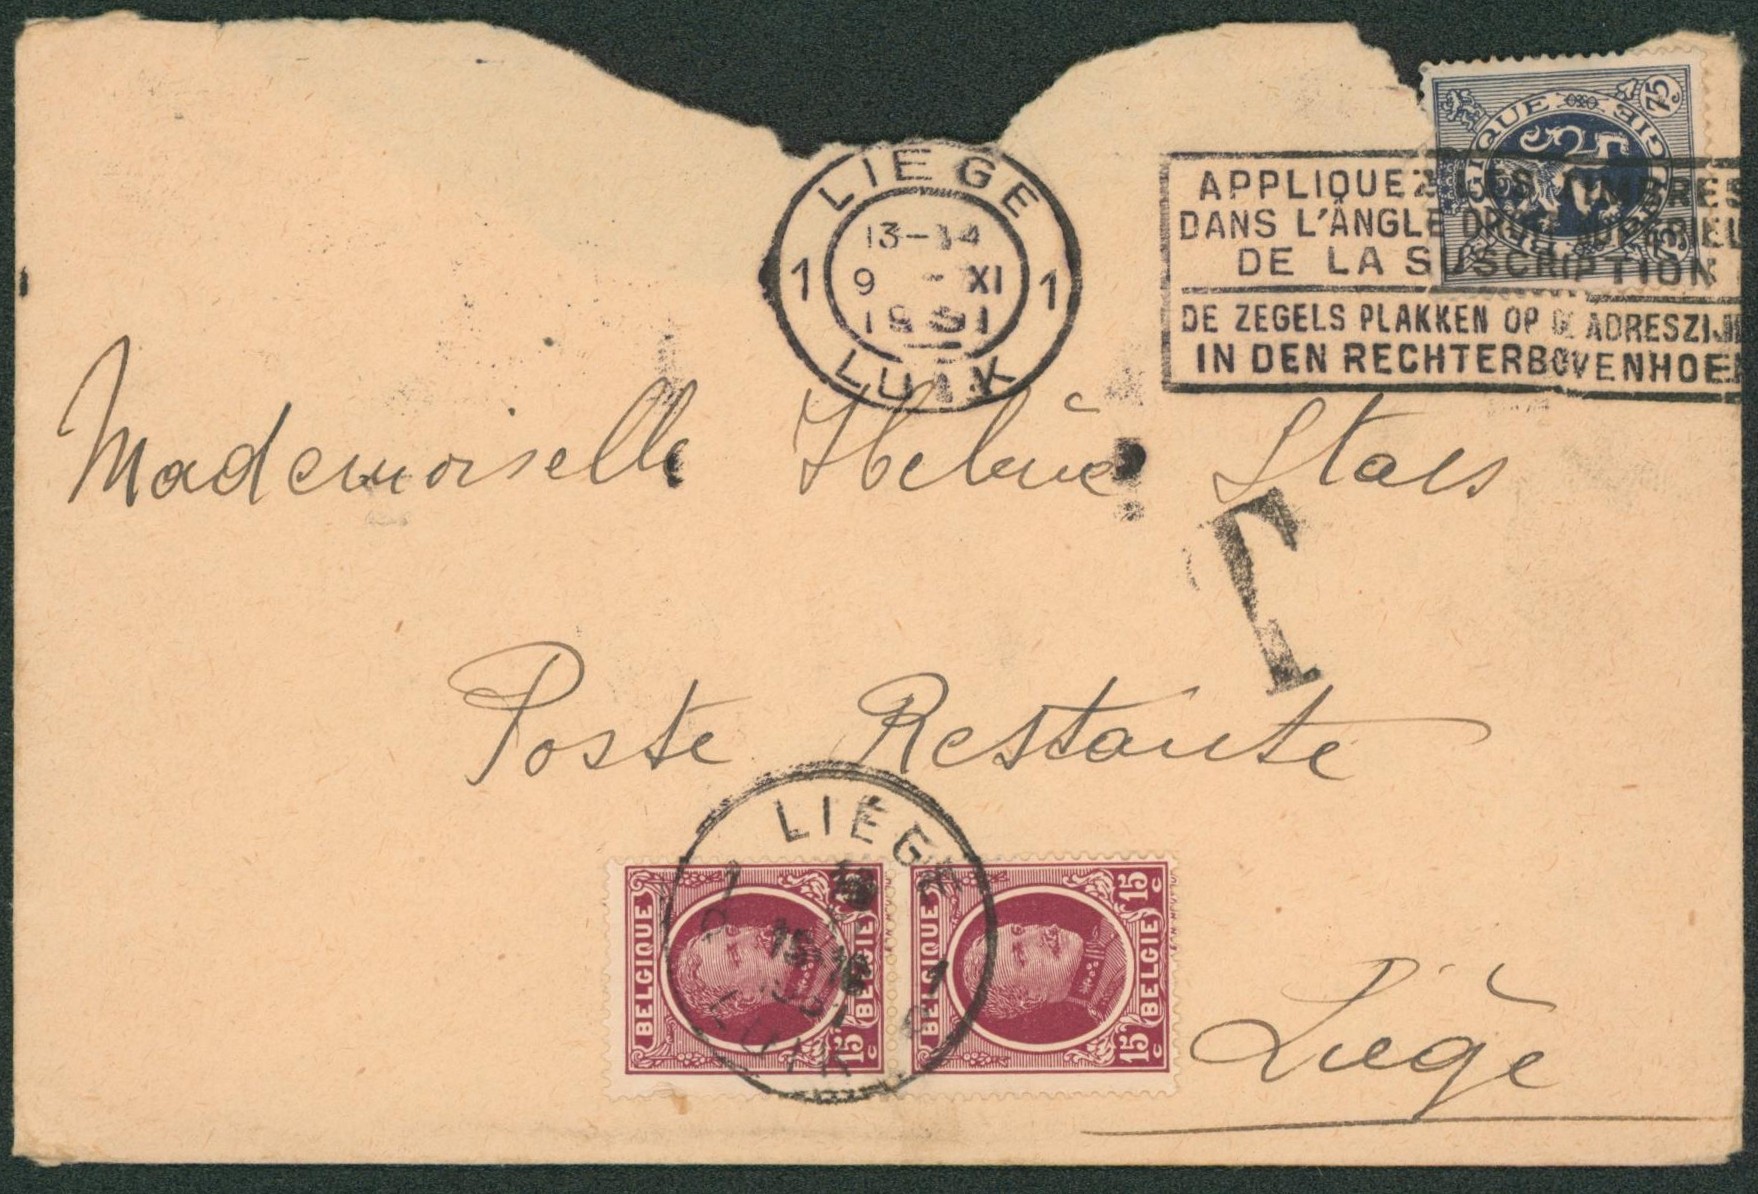 75 c
BELGIQUE BELGIË
LIEGE
13-14
1 9 - XI 1
1931
LUIK
APPLIQUEZ LES TIMBRES
DANS L'ANGLE DROIT SUPERIEU
DE LA SUSCRIPTION
DE ZEGELS PLAKKEN OP DE ADRESZIJDE
IN DEN RECHTERBOVENHOE
Mademoiselle Helène Staes
T
Poste Restante
LIÈGE
15-16
LUIK
BELGIQUE BELGIË 15 c 15 c
BELGIQUE BELGIË 15 c 15 c
Liège